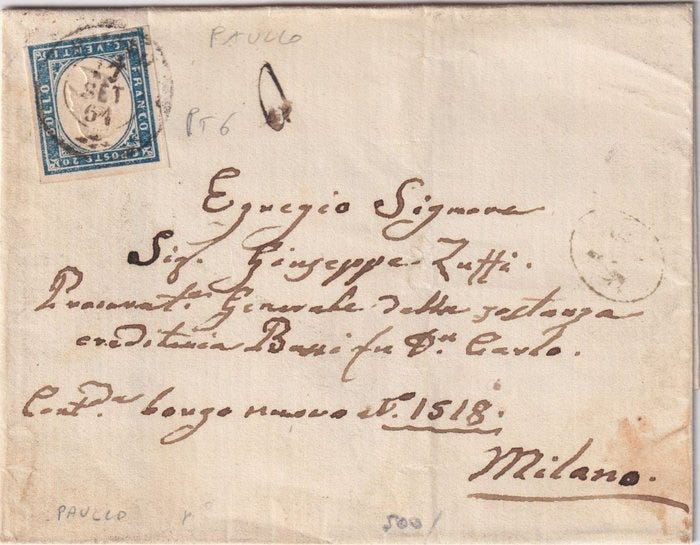 PAULLO
C. VENTI
FRANCO
BOLLO
C POSTE 20
SET
61
PT 6
Egregio Signore
Sig. Giuseppe Zuffi.
Procurat.e Generale della sostanza
creditoria Bassi fu Dn Carlo.
Cont.da borgo nuovo N. 1518.
Milano.
PAULLO
500/